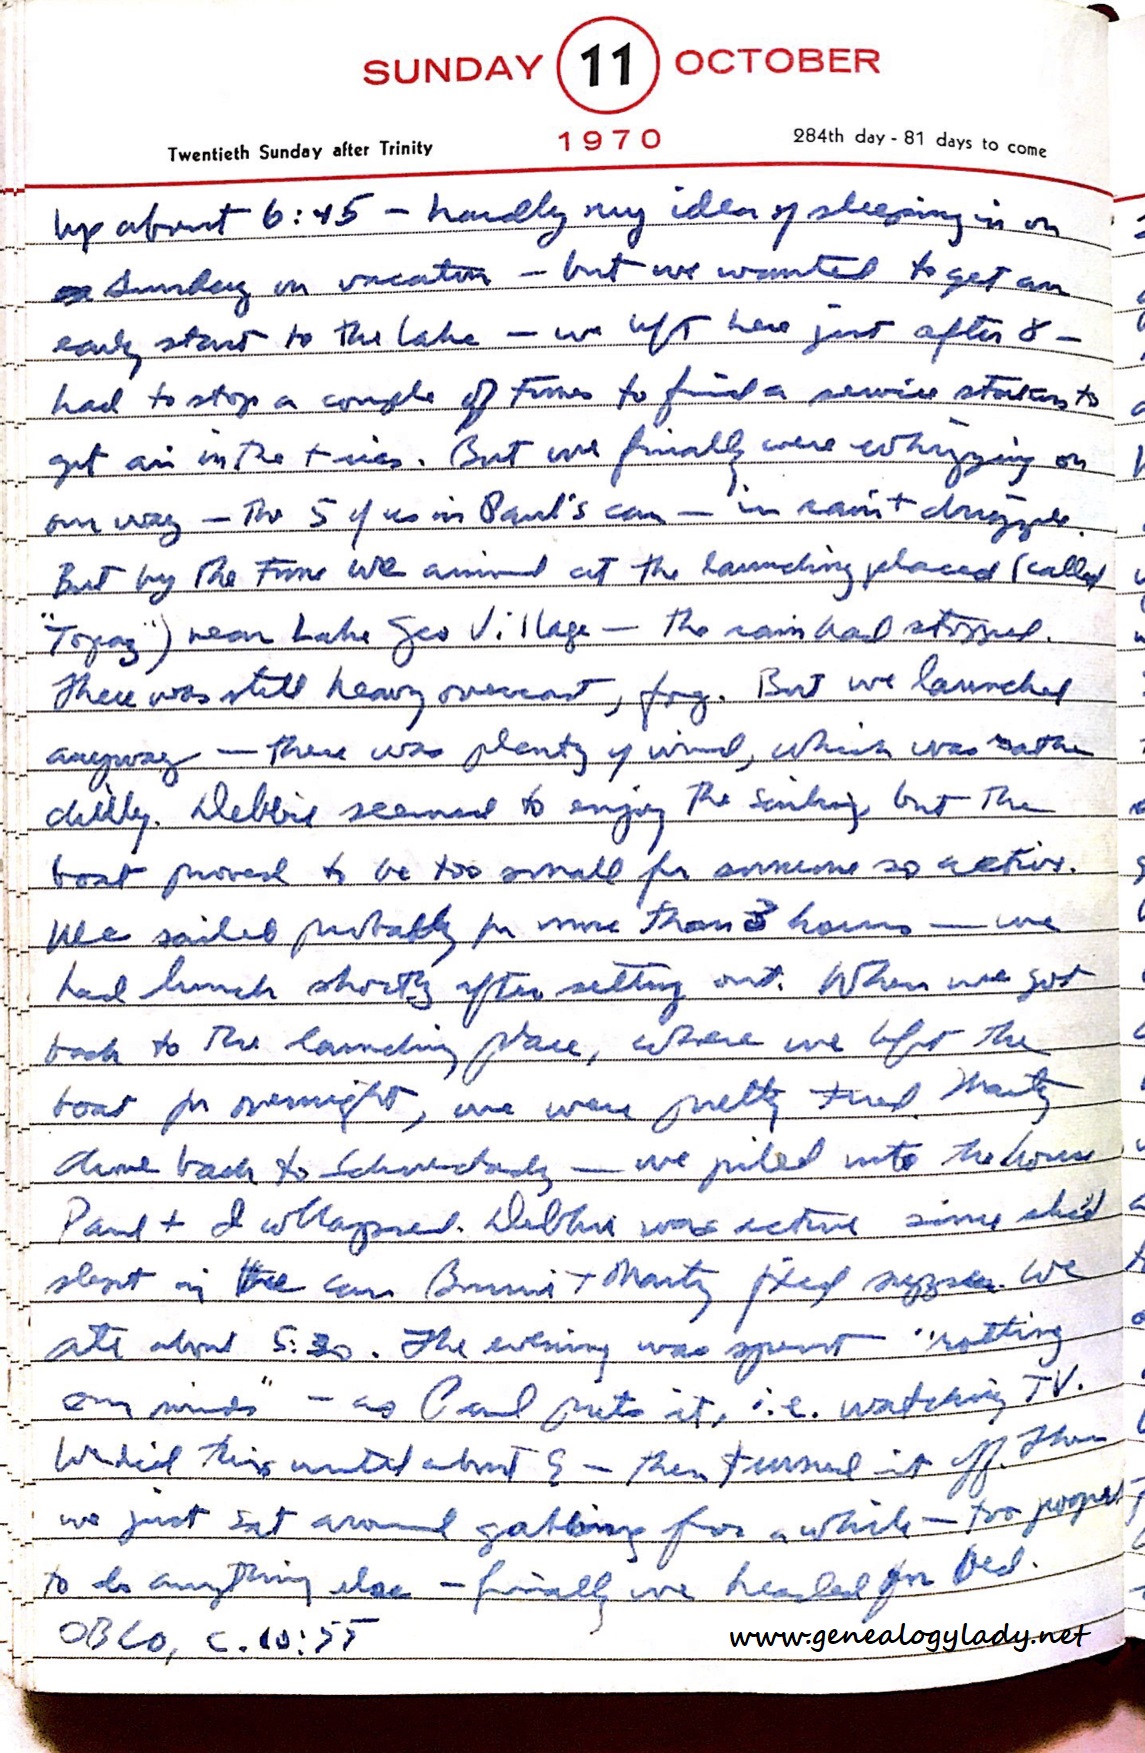 SUNDAY 11 OCTOBER
1970
Twentieth Sunday after Trinity
284th day - 81 days to come
Up about 6:45 – hardly my idea of sleeping in on
Sunday on vacation – but we wanted to get an
early start to the lake – we left here just after 8 –
had to stop a couple of times to find a service station to
get air in the tires. But we finally were whizzing on
our way – the 5 of us in Paul's car – in rain + drizzle.
But by the time we arrived at the launching placed (called
"Topaz") near Lake Geo Village – the rain had stopped.
There was still heavy overcast, fog. But we launched
anyway – there was plenty of wind, which was rather
chilly. Debbie seemed to enjoy the sailing but the
boat proved to be too small for someone so active.
We sailed probably for more than 3 hours – we
had lunch shortly after setting out. When we got
back to the launching place, where we left the
boat for overnight, we were pretty tired. Marty
drove back to Schenectady – we piled into the house
Paul + I collapsed. Debbie was active since she'd
slept in the car. Bonnie + Marty fixed supper. We
ate about 5:30. The evening was spent "rotting
our minds" – as Paul puts it, i.e. watching TV.
We did this until about 9 – then turned it off. Then
we just sat around gabbing for a while – too pooped
to do anything else – finally we headed for bed.
OBLO, c. 10:55
www.genealogylady.net